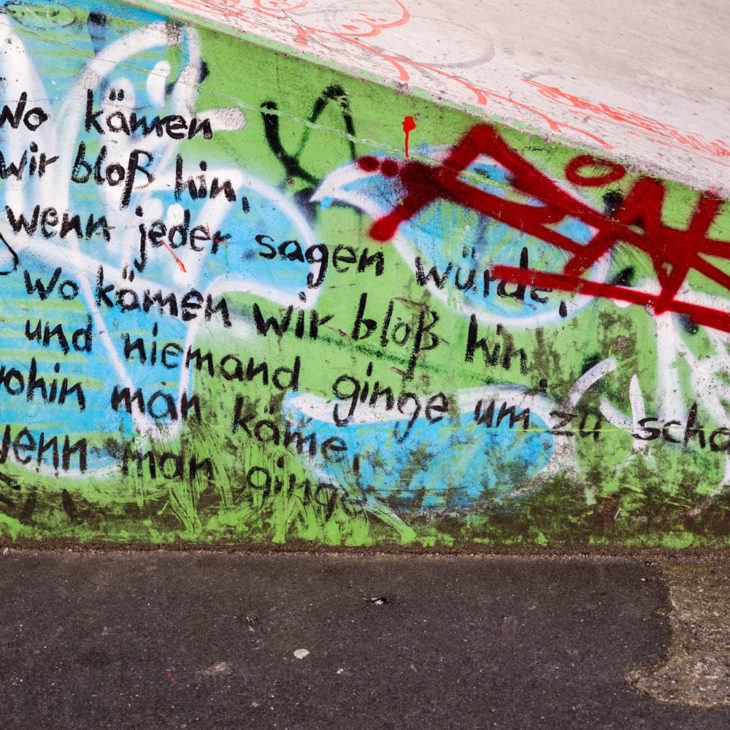 Wo kämen
wir bloß hin,
wenn jeder sagen würde,
wo kämen wir bloß hin,
und niemand ginge um zu scha
wohin man käme,
wenn man ginge